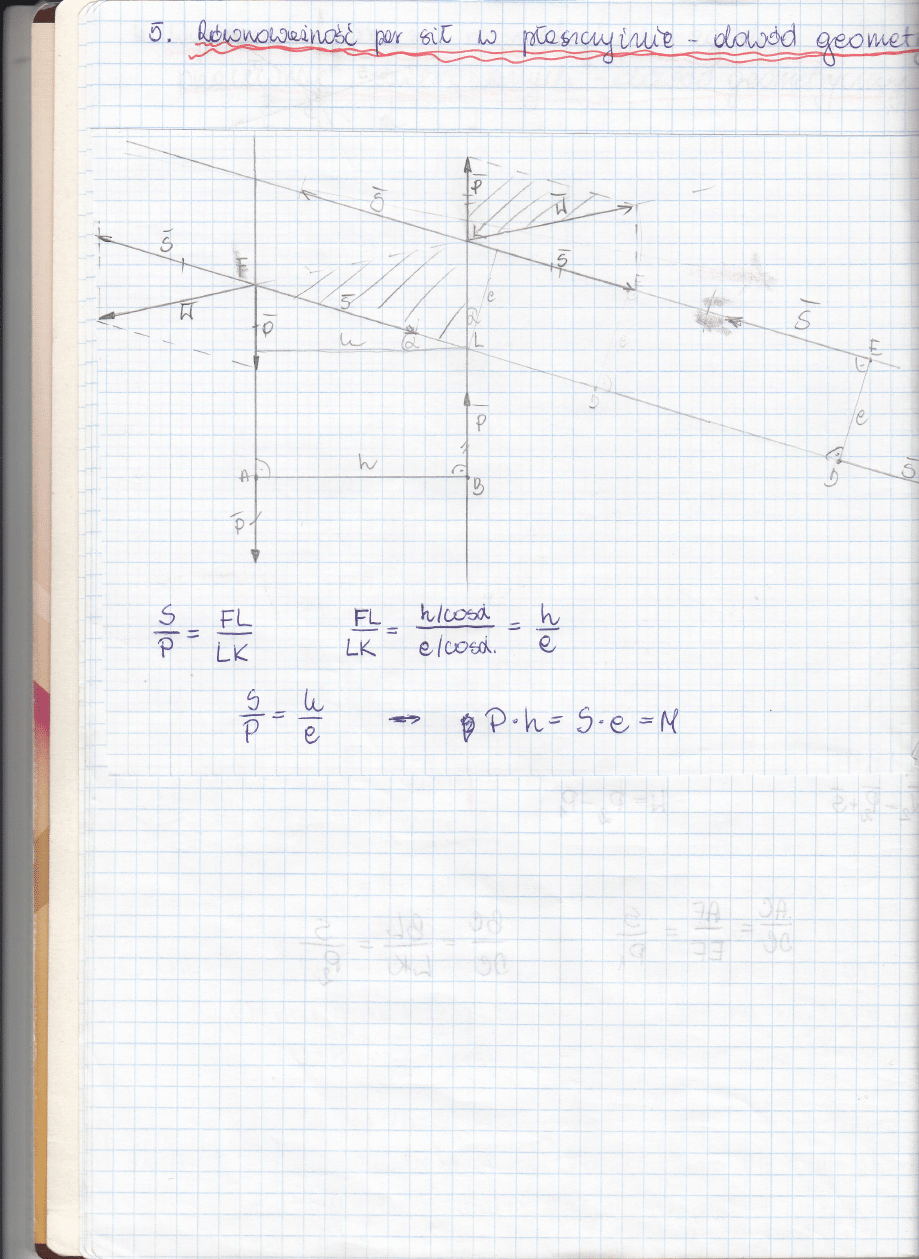 5. Równoważność par sił w płaszczyźnie - dowód geomet
P̄
S̄
W̄
S̄
F
K
S̄
W̄
S̄
e
S̄
P̄
h
α
α
L
E
e
P̄
D
A
h
B
D
S̄
P̄
S/P = FL/LK FL/LK = (h/cosα)/(e/cosα) = h/e
S/P = h/e → P·h = S·e = M